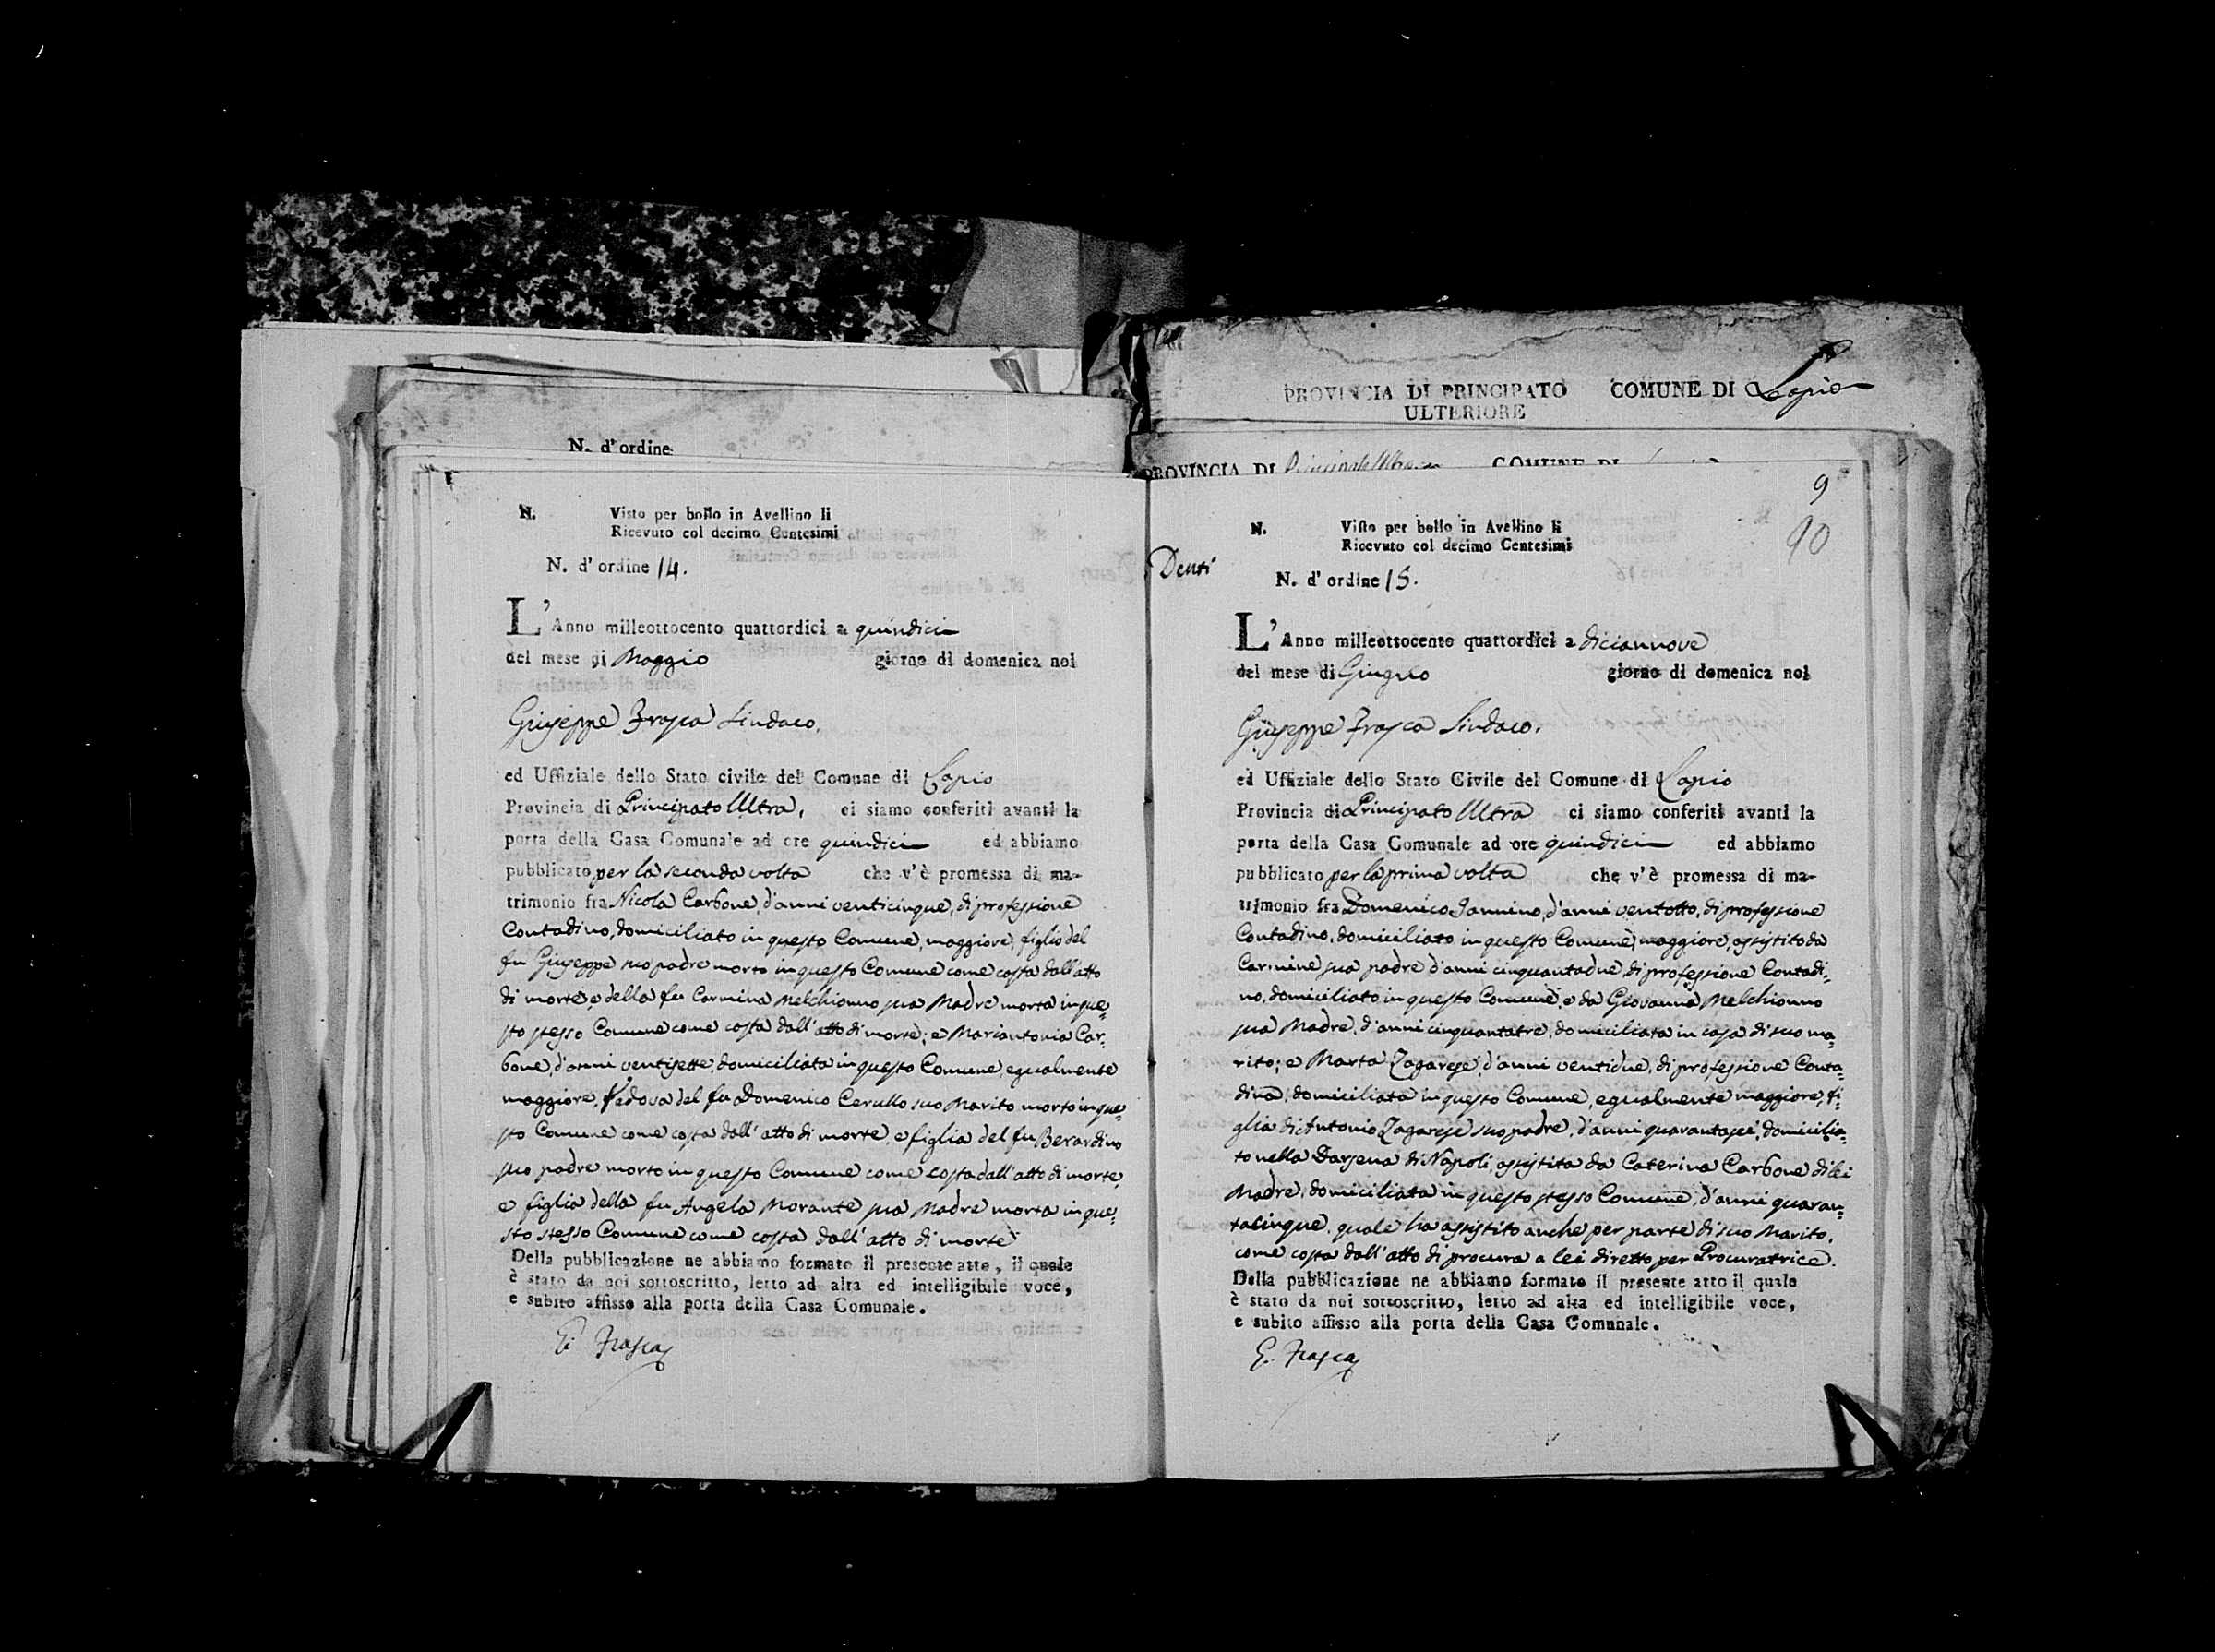 PROVINCIA DI PRINCIPATO ULTERIORE COMUNE DI Lapio
N. d'ordine
PROVINCIA DI Principato Ultra COMUNE DI
N. Visto per bollo in Avellino li
Ricevuto col decimo Centesimi
N. d'ordine 14.
L'Anno milleottocento quattordici a quindici
del mese di Maggio giorno di domenica noi
Giuseppe Frasca Sindaco,
ed Uffiziale dello Stato civile del Comune di Lapio
Provincia di Principato Ultra, ci siamo conferiti avanti la
porta della Casa Comunale ad ore quindici ed abbiamo
pubblicato per la seconda volta che v'è promessa di ma-
trimonio fra Nicola Carbone, d'anni venticinque, di professione
Contadino, domiciliato in questo Comune, maggiore, figlio del
fu Giuseppe suo padre morto in questo Comune come costa dall'atto
di morte, e della fu Carmina Melchionno sua Madre morta in que-
sto stesso Comune come costa dall'atto di morte; e Mariantonia Car-
bone, d'anni ventisette, domiciliata in questo Comune, egualmente
maggiore, Vedova del fu Domenico Cerullo suo Marito morto in que-
sto Comune come costa dall'atto di morte, e figlia del fu Berardino
suo padre morto in questo Comune come costa dall'atto di morte,
e figlia della fu Angela Morante sua Madre morta in que-
sto stesso Comune come costa dall'atto di morte
Della pubblicazione ne abbiamo formato il presente atto, il quale
è stato da noi sottoscritto, letto ad alta ed intelligibile voce,
e subito affisso alla porta della Casa Comunale.
G. Frasca
9
90
N. Visto per bollo in Avellino li
Ricevuto col decimo Centesimi
Denti
N. d'ordine 15.
L'Anno milleottocento quattordici a diciannove
del mese di Giugno giorno di domenica noi
Giuseppe Frasca Sindaco,
ed Uffiziale dello Stato Civile del Comune di Lapio
Provincia di Principato Ultra ci siamo conferiti avanti la
porta della Casa Comunale ad ore quindici ed abbiamo
pubblicato per la prima volta che v'è promessa di ma-
trimonio fra Domenico Jannino, d'anni ventotto, di professione
Contadino, domiciliato in questo Comune, maggiore, assistito da
Carmine suo padre d'anni cinquantadue, di professione Contadi-
no, domiciliato in questo Comune, e da Giovanna Melchionno
sua Madre, d'anni cinquantatre, domiciliata in casa di suo ma-
rito; e Marta Zagarese, d'anni ventidue, di professione Conta-
dina, domiciliata in questo Comune, egualmente maggiore, fi-
glia di Antonio Zagarese suo padre, d'anni quarantasei, domicilia-
to nella Darsena di Napoli, assistita da Caterina Carbone di lei
Madre, domiciliata in questo stesso Comune, d'anni quaran-
tacinque, quale ha assistito anche per parte di suo Marito,
come costa dall'atto di procura a lei diretto per Procuratrice.
Della pubblicazione ne abbiamo formato il presente atto il quale
è stato da noi sottoscritto, letto ad alta ed intelligibile voce,
e subito affisso alla porta della Casa Comunale.
G. Frasca